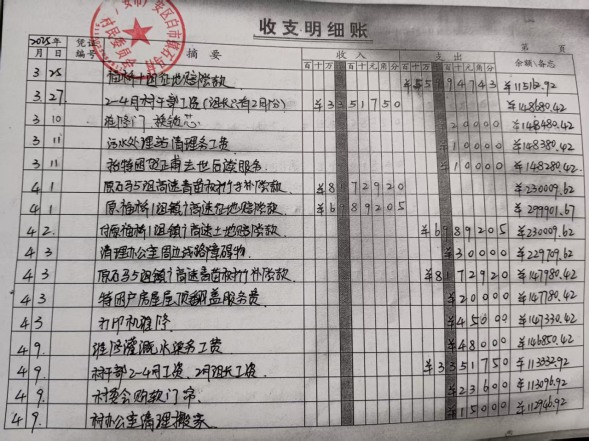 收支明细账
2025年 凭证编号 摘要 收入 支出 余额/备忘
月 日 百十万千百十元角分 百十万千百十元角分
3 25 梅桥十四征地赔偿款 ¥5594743 ¥115162.92
3 27 2-4月村干部工资(组长只有2月份) ¥3351750 ¥148680.42
3 10 维修门 换锁芯 ¥20000 ¥148480.42
3 11 污水处理站清理务工费 ¥10000 ¥148380.42
3 11 去世后续服务 ¥10000 ¥148280.42
4 1 原石35组高速青苗树竹补偿款 ¥8172920 ¥230009.62
4 1 原梅桥1组镇广高速征地赔偿款 ¥6989205 ¥299901.67
4 2 付原梅桥1组镇广高速土地赔偿款 ¥6989205 ¥230009.62
4 3 清理办公室周边线路障碍物 ¥30000 ¥229709.62
4 3 原石35组镇广高速青苗树竹补偿款 ¥8172920 ¥147980.42
4 3 特困户房屋屋顶翻盖服务费 ¥20000 ¥147780.42
4 3 打印机维修 ¥45000 ¥147330.42
4 9 维修灌溉水渠务工费 ¥48000 ¥146850.42
4 9 村干部2-4月工资、2月组长工资 ¥3351750 ¥113332.92
4 9 村委会购款门帘 ¥23600 ¥113096.92
4 9 村办公室清理搬家 ¥15000 ¥112946.92